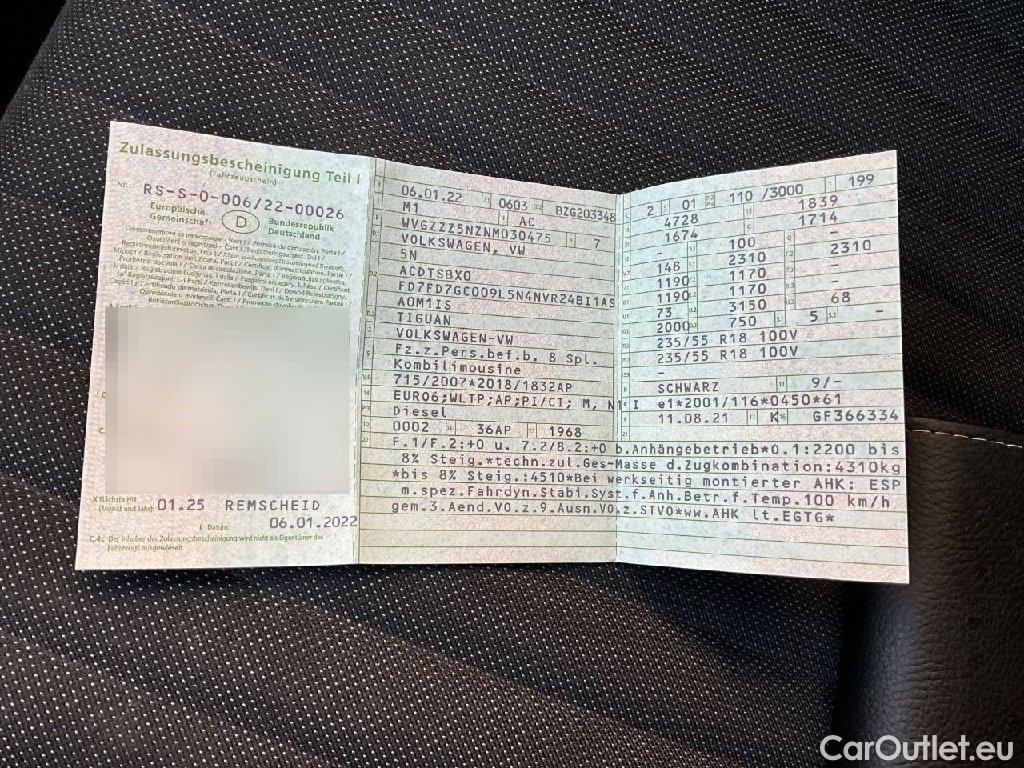 Zulassungsbescheinigung Teil I
(Fahrzeugschein)
Nr. RS-S-0-006/22-00026
Europäische Gemeinschaft
D
Bundesrepublik Deutschland
X Nächste HU (Monat und Jahr) 01.25 REMSCHEID
I Datum: 06.01.2022
C.4c Der Inhaber der Zulassungsbescheinigung wird nicht als Eigentümer des
Fahrzeugs ausgewiesen.
06.01.22 0603 BZG203348
M1 AC
WVGZZZ5NZNM030475 7
VOLKSWAGEN, VW
5N
ACDTSBX0
FD7FD7GC009L5N4NVR24BI1AS
AOM1IS
TIGUAN
VOLKSWAGEN-VW
Fz.z.Pers.bef.b. 8 Spl.
Kombilimousine
715/2007*2018/1832AP
EURO6;WLTP;AP;PI/CI; M, N1 I
Diesel
0002 36AP 1968
2 01 110 /3000 199
4728 1839
1674 1714
100 -
148 2310 2310
1190 1170 -
1190 1170 -
73 3150 68
2000 750 5 -
235/55 R18 100V
235/55 R18 100V
-
SCHWARZ 9/-
e1*2001/116*0450*61
11.08.21 K GF366334
F.1/F.2:+0 u. 7.2/8.2:+0 b.Anhängebetrieb*0.1:2200 bis
8% Steig.*techn.zul.Ges-Masse d.Zugkombination:4310kg
*bis 8% Steig.:4510*Bei werkseitig montierter AHK: ESP
m.spez.Fahrdyn.Stabi.Syst.f.Anh.Betr.f.Temp.100 km/h
gem.3.Aend.VO.z.9.Ausn.VO.z.STVO*ww.AHK lt.EGTG*
CarOutlet.eu